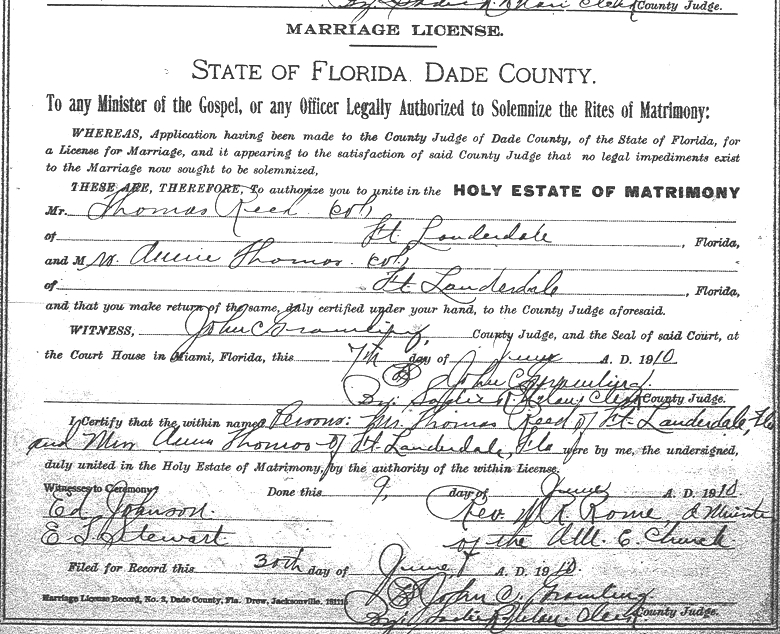 County Judge.
MARRIAGE LICENSE.
STATE OF FLORIDA. DADE COUNTY.
To any Minister of the Gospel, or any Officer Legally Authorized to Solemnize the Rites of Matrimony:
WHEREAS, Application having been made to the County Judge of Dade County, of the State of Florida, for
a License for Marriage, and it appearing to the satisfaction of said County Judge that no legal impediments exist
to the Marriage now sought to be solemnized,
THESE ARE, THEREFORE, To authorize you to unite in the HOLY ESTATE OF MATRIMONY
Mr. Thomas Reed col,
of Ft Lauderdale, Florida,
and M rs. Annie Thomas. col,
of Ft Lauderdale, Florida,
and that you make return of the same, duly certified under your hand, to the County Judge aforesaid.
WITNESS, John C Gramling, County Judge, and the Seal of said Court, at
the Court House in Miami, Florida, this 7th day of June A. D. 1910
John C Gramling.
By: Clerk County Judge.
I Certify that the within named Persons: Mr. Thomas Reed of Ft. Lauderdale, Fla
and Mrs Annie Thomas of Ft. Lauderdale, Fla were by me, the undersigned,
duly united in the Holy Estate of Matrimony, by the authority of the within License.
Witnesses to Ceremony: Done this 9, day of June A. D. 1910.
Ed Johnson. Rev. W. R. Rome, a Minister
E. J. Stewart of the A.M. E. Church
Filed for Record this 30th day of June A. D. 1910.
Marriage License Record, No. 2, Dade County, Fla. Drew, Jacksonville. John C. Gramling
By: Clerk County Judge.